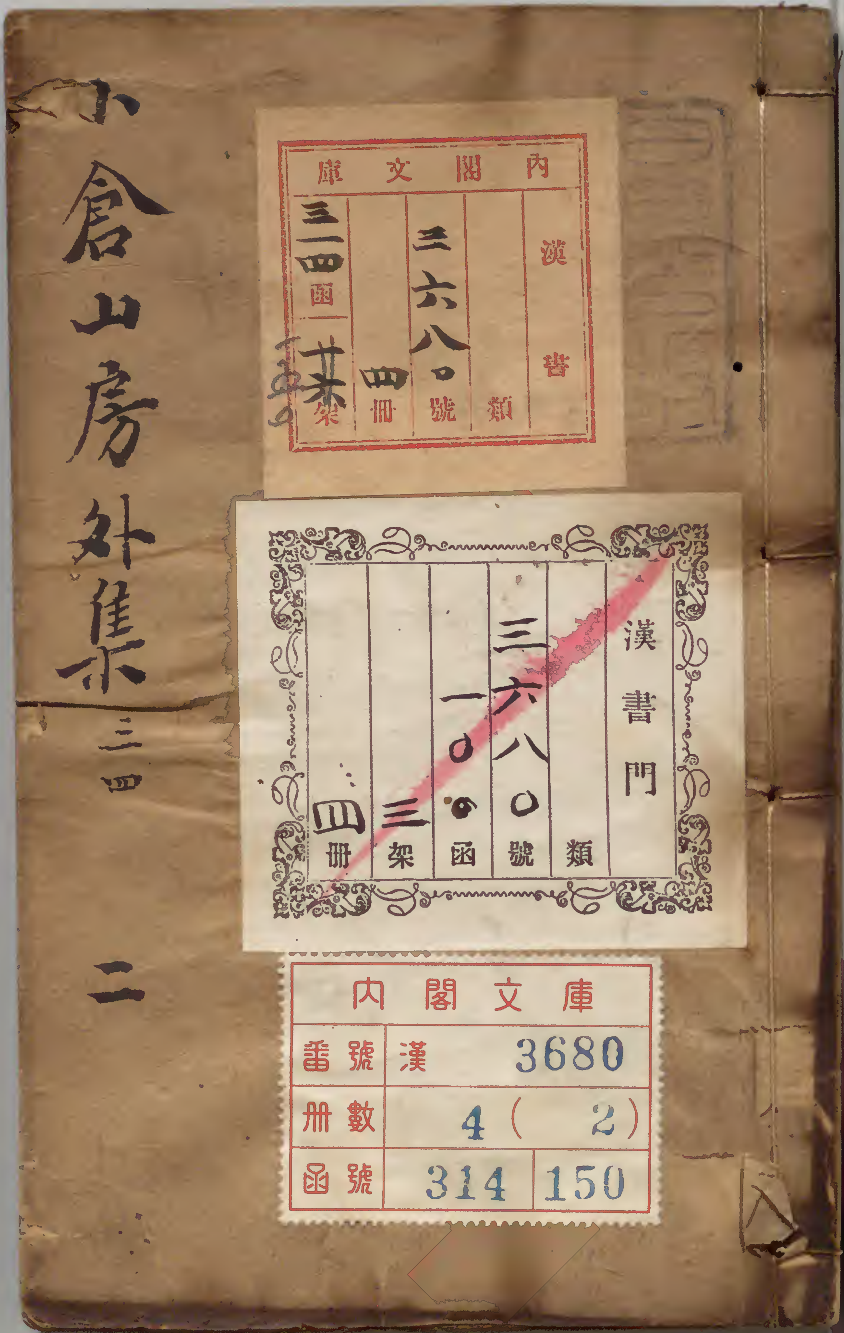 小倉山房外集 三四 二
內閣文庫
漢書
類
三六八〇號
四冊
三一四函
廿六架
漢書門
類
三六八〇號
一〇〇函
三架
四冊
內閣文庫
番號 漢 3680
冊數 4 ( 2 )
函號 314 150